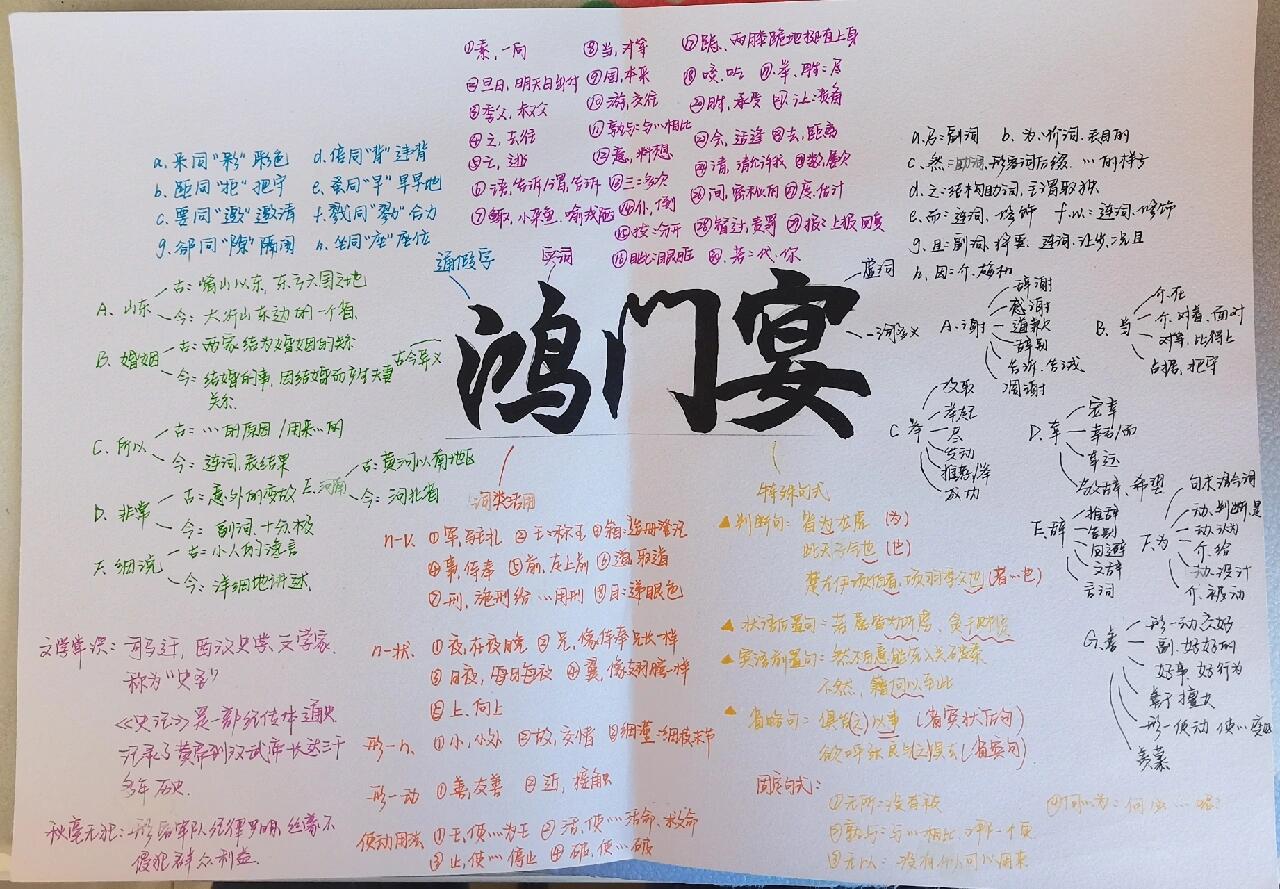 鸿门宴
通假字
a. 采同"彩" 彩色
b. 距同"拒" 把守
c. 要同"邀" 邀请
g. 郤同"隙" 隔阂
d. 倍同"背" 违背
e. 蚤同"早" 早早地
f. 戮同"勠" 合力
h. 坐同"座" 座位
实词
①素,一向
②旦日,明天
③季父,叔父
④之,去往
⑤亡,逃
⑥语,告诉/谓,告诉
⑦鲰,小杂鱼
⑧当,对等
⑨固,本来
⑩游,交往
孰与:与…相比
意,料想
三:多次
仆,倒
按:
眦:眼眶
跽,两膝跪地挺直上身
啖,吃
举,胜:尽
胜,承受
让:责备
会,适逢
去,距离
请,请允许我
数,屡次
间,
度,估计
督过,责骂
报:上报 回复
若:代,你
虚词
a. 忌:副词
b. 为:介词,表目的
c. 然:助词,形容词后缀,…的样子
d. 之:结构助词,主谓取独
e. 而:连词,修饰
f. 以:连词,修饰
g. 且:副词,将要 连词,让步,况且
h. 因:介,趁机
古今异义
A. 山东
古:崤山以东,东方六国之地
今:太行山东边的一个省
B. 婚姻
古:两家结为婚姻的关系
今:结婚的事,因结婚而产生夫妻
关系
C. 所以
古:…的原因/用来…的
今:连词,表结果
D. 非常
古:意外的变故
今:副词,十分,极
E. 河南
古:黄河以南地区
今:河北省
F. 细流
古:小人的谗言
今:详细地讲述
一词多义
A. 谢
辞谢
感谢
道歉
辞别
告诉,告诫
凋谢
B. 当
介,在
介,对着,面对
对等,比得上
占据,把守
C. 举
攻取
举起
尽
发动
推荐/举
成功
D. 幸
宠幸
幸亏/而
幸运
敬辞,希望
E. 辞
推辞
告别
回避
文辞
言词
F. 为
句末语气词
动,判断,是
动,认为
介,给
动,设计
介,被动
G. 善
形—动 交好
副,好好的
好事 好行为
善于 擅长
形—使动 使…变好
羡慕
词类活用
n-v. ①军,驻扎 ②王:称王 ③籍:造册登记
④事,侍奉 ⑤前,在上前 ⑥道,取道
⑦刑,施刑给…用刑 ⑧目:递眼色
n-状. ①夜,在夜晚 ②兄,像侍奉兄长一样
③日夜,每日每夜 ④翼,像翅膀一样
⑤上,向上
形-n. ①小,小处 ②故,交情 ③细谨:细枝末节
形-动 ①善,友善 ②近,接触
使动用法 ①王,使…为王 ②活,使…活命,救命
③止,使…停止 ④破,使…破
特殊句式
▲判断句:皆为龙虎 (为)
此天子气也 (也)
楚左尹项伯者,项羽季父也 (者…也)
▲状语后置句:
▲宾语前置句:然不自意能先入关破秦
不然,籍何以至此
▲省略句:俱告(之)以事 (省宾状后句)
欲呼张良与(之)俱去 (省宾句)
固定句式:
①无所:没有
②孰与:与…相比,哪一个更
③无以:没有
④何以为:何必……呢?
文学常识:司马迁,西汉史学、文学家.
称为"史家"
《史记》是一部纪传体通史
记录了黄帝到汉武帝长达三千
多年历史.
秋毫无犯:形容军队纪律严明,丝毫不
侵犯群众利益.